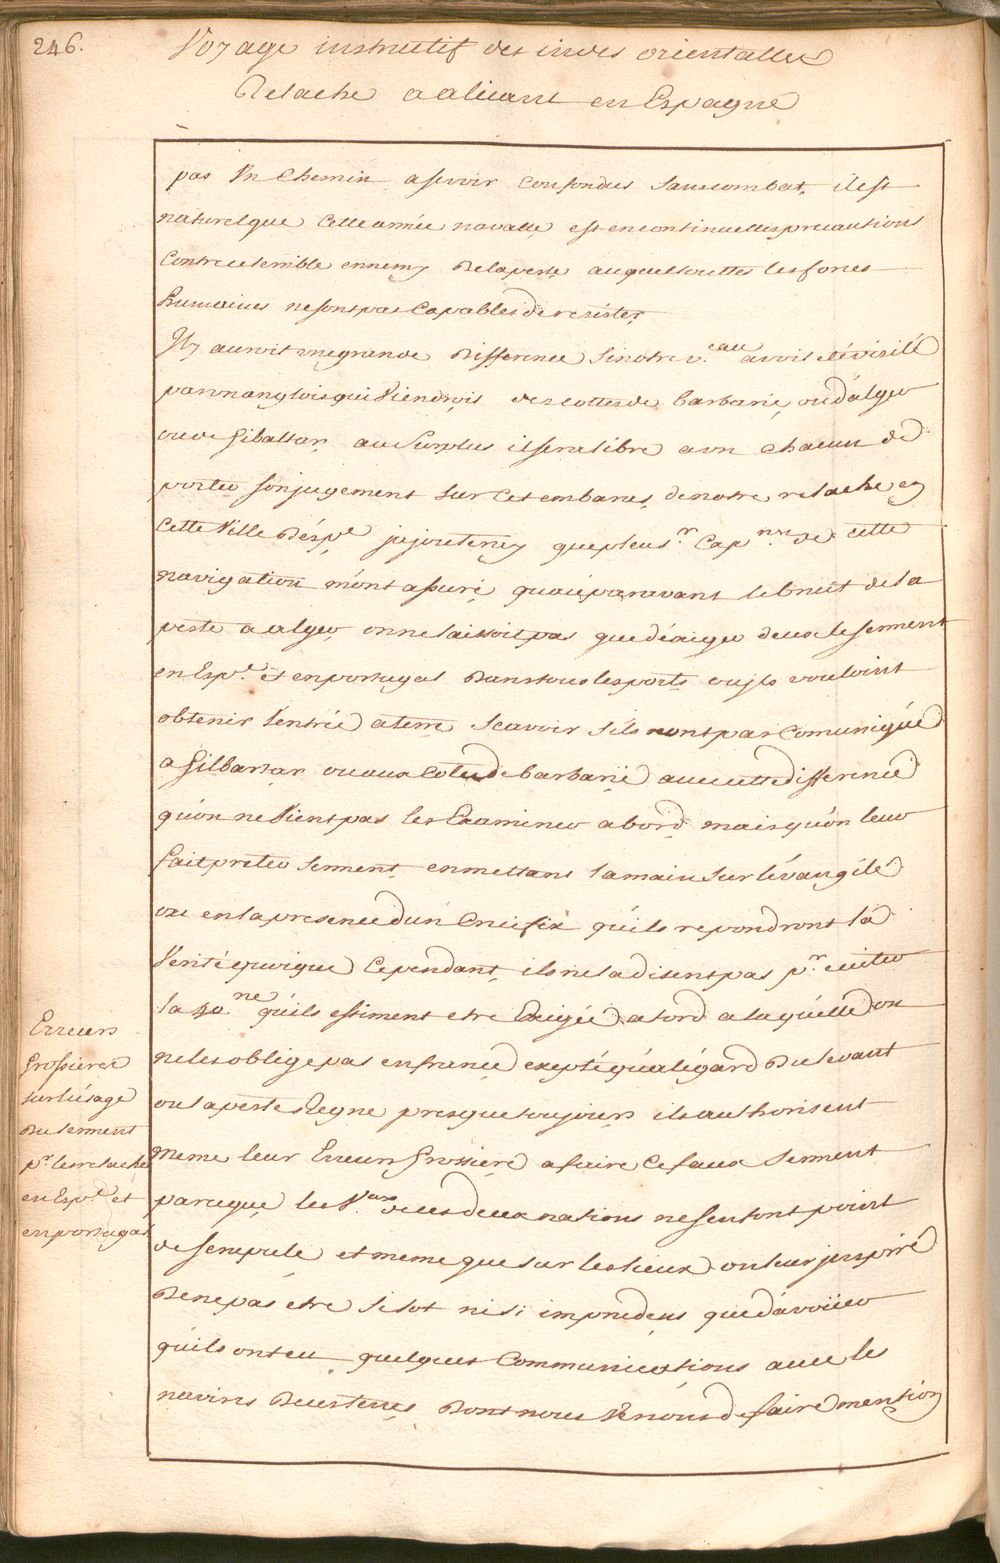 246.
Voyage instructif des indes orientalles
Relache a alicant en Espagne
pas Un Chemin a se voir confondus sans combat, il est
naturel que Cette armée navalle est en continuelles precautions
Contre ce terrible ennemy De la peste auquel touttes les forces
humaines ne sont pas Capables de resister
Il y auroit une grande Difference si notre v.eau avoit eté visité
par un anglois qui Viendrois des cottes de barbarie, ou d'alger
ou de Gibaltar, au Surplus il sera libre a un chacun de
porter son jugement sur cet embaras, de notre relache en
Cette Ville D'espe. j'ajouterey que plus.rs Cap.nes de cette
navigation m'ont assuré, qu'auparavant le bruit de la
peste a alger on ne laissoit pas que d'exiger d'eux le serment
en Espe. et en portugal Dans tous les ports ou ils vouloint
obtenir l'entrée a terre Scavoir s'ils n'ont pas Comuniqué
a Gilbartar ou aux Cotes de barbarië avec cette difference
qu'on ne Vient pas les Examiner a bord mais qu'on leur
fait preter serment, en mettans la main sur l'évangilé
ou en la presence d'un Crucifix qu'ils repondront la
Verité quoique Cependant, ils ne la disent pas p.r eviter
la 40.ne qu'ils estiment etre Exigée a tord a laquéllé on
ne les oblige pas en france excepté qu'a l'égard Du levant
ou la peste Regne presque toujours ils authorisent
meme leur Erreur Grossiere a faire Ce faux Serment
parceque les V.aux de ces deux nations ne se font point
de scrupule et meme que sur les lieux on leur jnspiré
De ne pas etre si sot ni si imprudens que d'avoüer
qu'ils ont eu quelques Communications avec les
navires De ces terres Dont nous Venons de faire mention
Erreurs
Grossieres
sur l'usage
Du serment
p.r les relaches
en Espe. et
en portugal